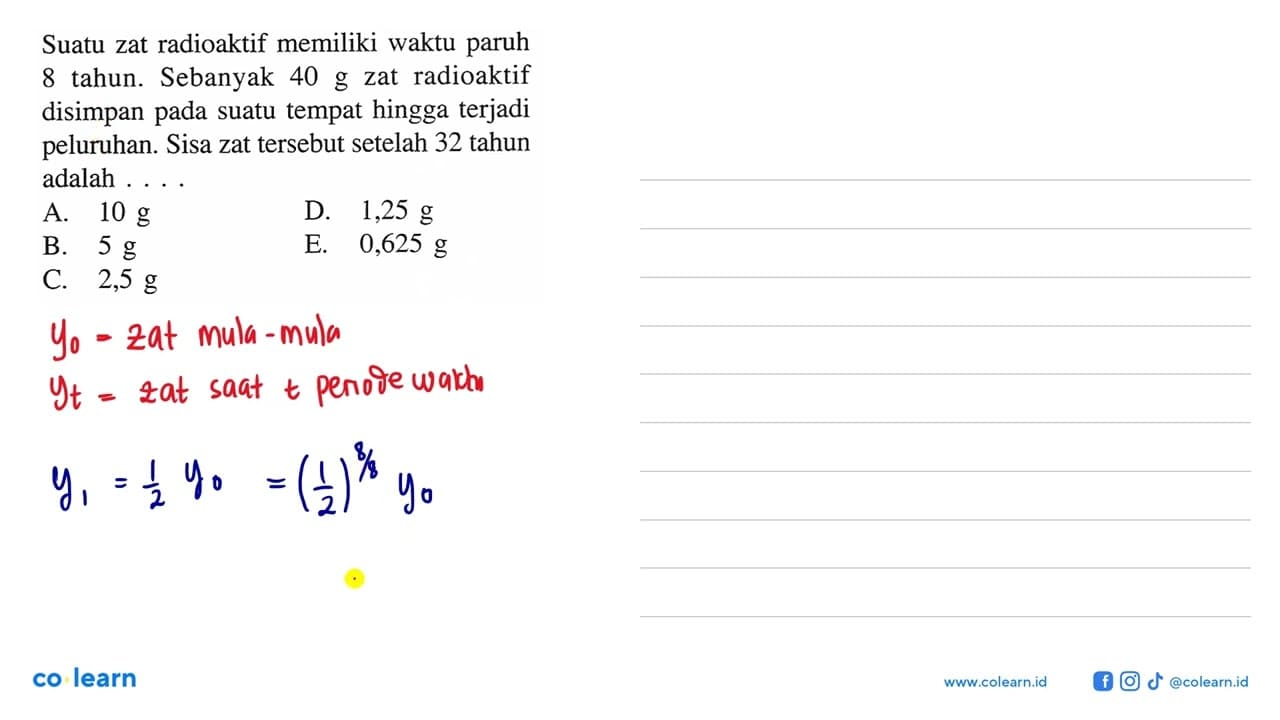 Suatu zat radioaktif memiliki waktu paruh
8 tahun. Sebanyak 40 g zat radioaktif
disimpan pada suatu tempat hingga terjadi
peluruhan. Sisa zat tersebut setelah 32 tahun
adalah . . . .
A. 10 g D. 1,25 g
B. 5 g E. 0,625 g
C. 2,5 g
y₀ = zat mula-mula
yt = zat saat t periode waktu
y₁ = 1/2 y₀ = (1/2)^8/8 y₀
co learn
www.colearn.id @colearn.id